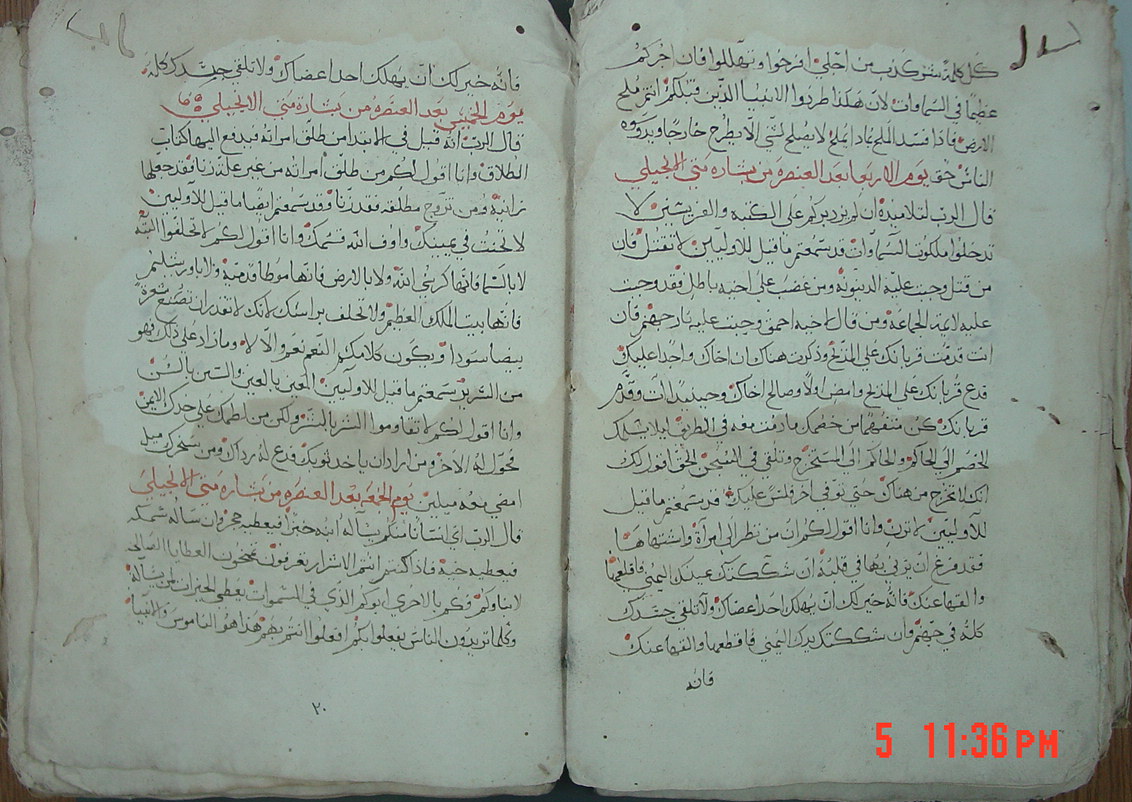 كل كلمة سو كذب من اجلي افرحوا وتهللوا فان اجركم
عظيما في السماوات لان هكذا طردوا الانبيا الذين قبلكم انتم ملح
الارض فاذا فسد الملح بماد ايملح لا يصلح لشي الا يطرح خارجا ويدوسوه
الناس يوم الاربعا بعد العنصره من بشاره متي الانجيلي
قال الرب لتلاميذه ان لم يزد بركم علي الكتبه والفريسين لا
تدخلوا ملكوت السماوات قد سمعتم ما قيل للاوليين لا تقتل فان
من قتل وجبت عليه الدينونه ومن غضب علي اخيه باطل فقد وجبت
عليه لايمة الجماعه ومن قال لاخيه احمق وجبت عليه نار جهنم فان
انت قدمت قربانك علي المذبح وذكرت هناك ان اخاك واجدا عليك
فدع قربانك علي المذبح وامض اولا وصالح اخاك وحينيذ اات وقدم
قربانك كن متفهما من خصمك ما دمت معه في الطريق ليلا يسلمك
الخصم الي الحاكم والحاكم الي المستخرج وتلقي في السجن الحق اقول لك
انك لا تخرج من هناك حتي توفي اخر فلس عليك قد سمعتم ما قيل
للاوليين لا تزن وانا اقول لكم ان من نظر الي امراة واشتهاها
فقد فرغ ان يزني بها في قلبه ان شككتك عينك اليمني فاقلعها
والقيها عنك فانه خير لك ان يهلك احد اعضاك ولا تلقي جسدك
كله في جهنم وان شككتك يدك اليمني فاقطعها والقيها عنك
فانه
فانه خير لك ان يهلك احد اعضاك ولا تلقي جسدك كله
يوم الخميس بعد العنصره من بشارة متي الانجيلي
قال الرب انه قيل في الابتدا من طلق امراته فيدفع اليها كتاب
الطلاق وانا اقول لكم من طلق امراته من غير علة زنا فقد جعلها
زانية ومن تزوج مطلقه فقد زنا وقد سمعتم ايضا ما قيل للاوليين
لا تحنث في يمينك واوف الله قسمك وانا اقول لكم لا تحلفوا البتة
لا بالسما فانها كرسي الله ولا بالارض فانها موطا قدميه ولا باورشليم
فانها بيت الملك العظيم ولا تحلف براسك لانك لا تقدر ان تصنع شعرة
بيضا سودا ويكون كلامكم النعم نعم والا لا وما زاد علي ذلك فهو
من الشرير سمعتم ما قيل للاوليين العين بالعين والسن بالسن
وانا اقول لكم لا تقاوموا الشر بالشر ولكن من لطمك علي خدك الايمن
فحول له الاخر ومن اراد ان ياخذ ثوبك فدع له رداك ومن سخرك ميل
امضي معه ميلين يوم الجمعه بعد العنصره من بشاره متي الانجيلي
قال الرب اي انسانا منكم يساله ابنه خبزا فيعطيه حجر وان ساله سمكه
فيعطيه حية فاذا كنتم انتم الاشرار تعرفون تمنحون العطايا الصالحه
لابناوكم فكم بالاحري ابوكم الذي في السموات يعطي الخيرات لمن يساله
وكلما تريدون الناس يفعلوا بكم افعلوا انتم بهم هذا هو الناموس والانبيا
٢٠
5 11:36 PM